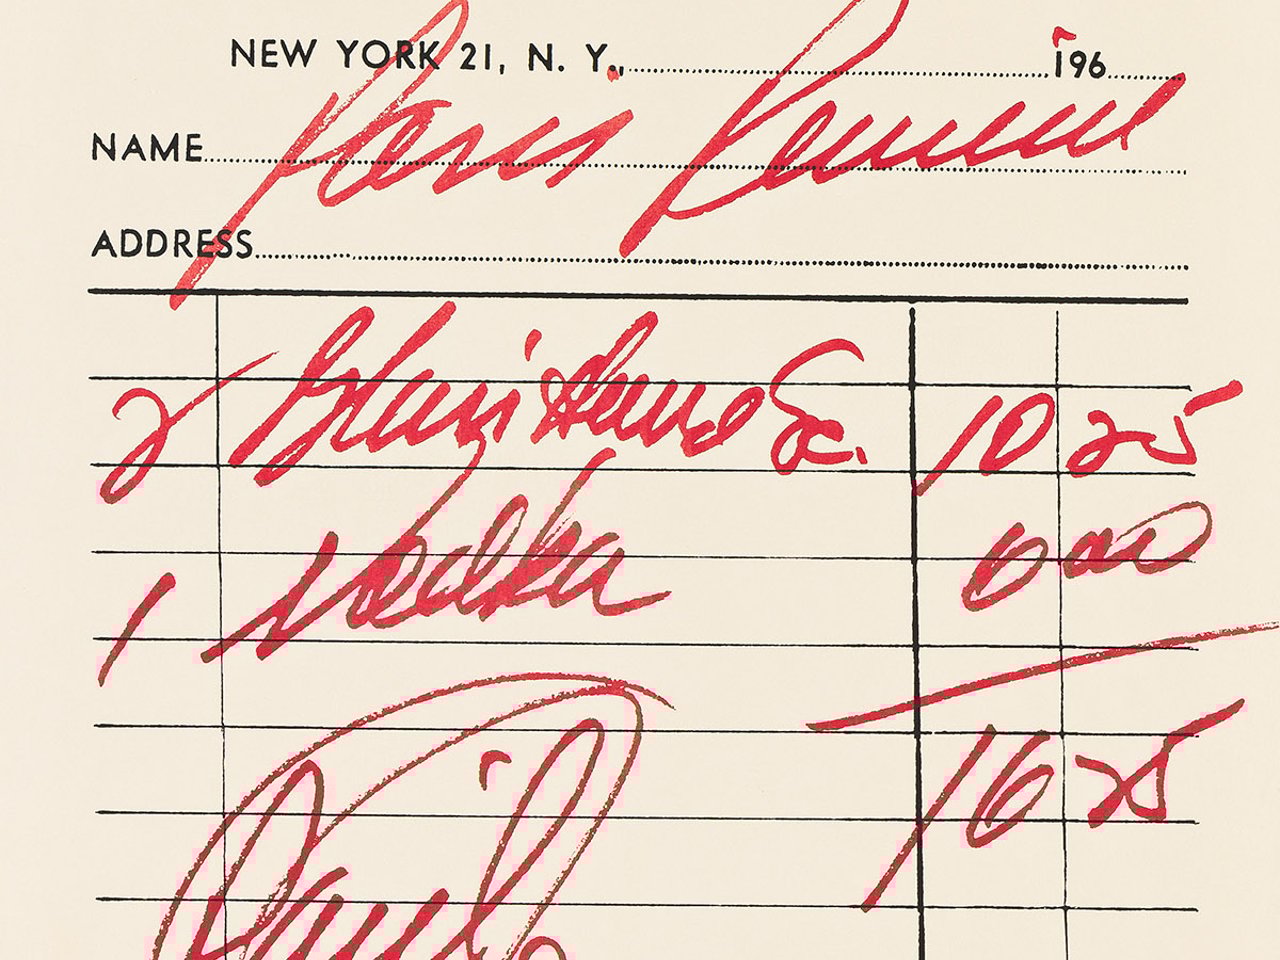 NEW YORK 21, N. Y., 196
NAME Paris Review
ADDRESS
2 Sc. 10 25
1 Vodka 6 00
16 25
Paid